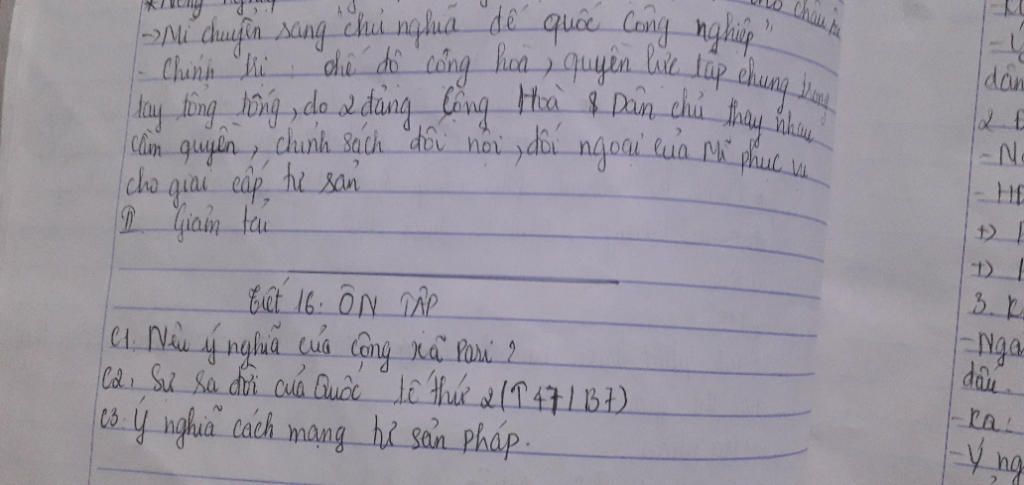 →Mĩ chuyển sang "chủ nghĩa đế quốc Công nghiệp"
- Chính trị: chế độ cộng hoà, quyền lực tập chung trong
tay tổng thống, do 2 đảng Cộng Hoà & Dân chủ thay nhau
cầm quyền, chính sách đối nội, đối ngoại của Mĩ phục vụ
cho giai cấp tư sản
II Giảm tải
tiết 16: ÔN TẬP
C1. Nêu ý nghĩa của Công xã Pari?
C2. Sự sa đời của Quốc tế thứ 2 (T47/B7)
C3. Ý nghĩa cách mạng tư sản pháp.
dân
2
+)
+)
3.
-Nga
đầu.
-Ra:
-Ý ng